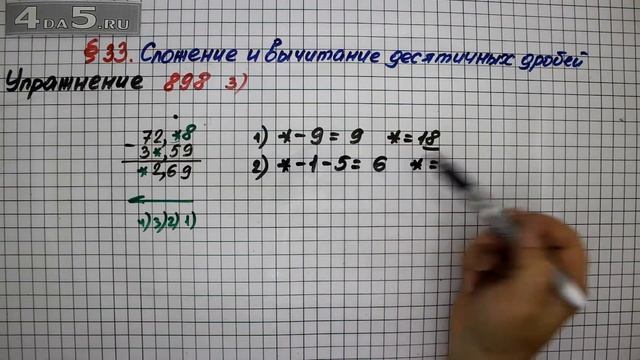 4DA5.RU
§33. Сложение и вычитание десятичных дробей
Упражнение 898 3)
72,*8
- 3*,59
*2,69
4)3)2)1)
1) *-9=9 *=18
2) *-1-5=6 *=